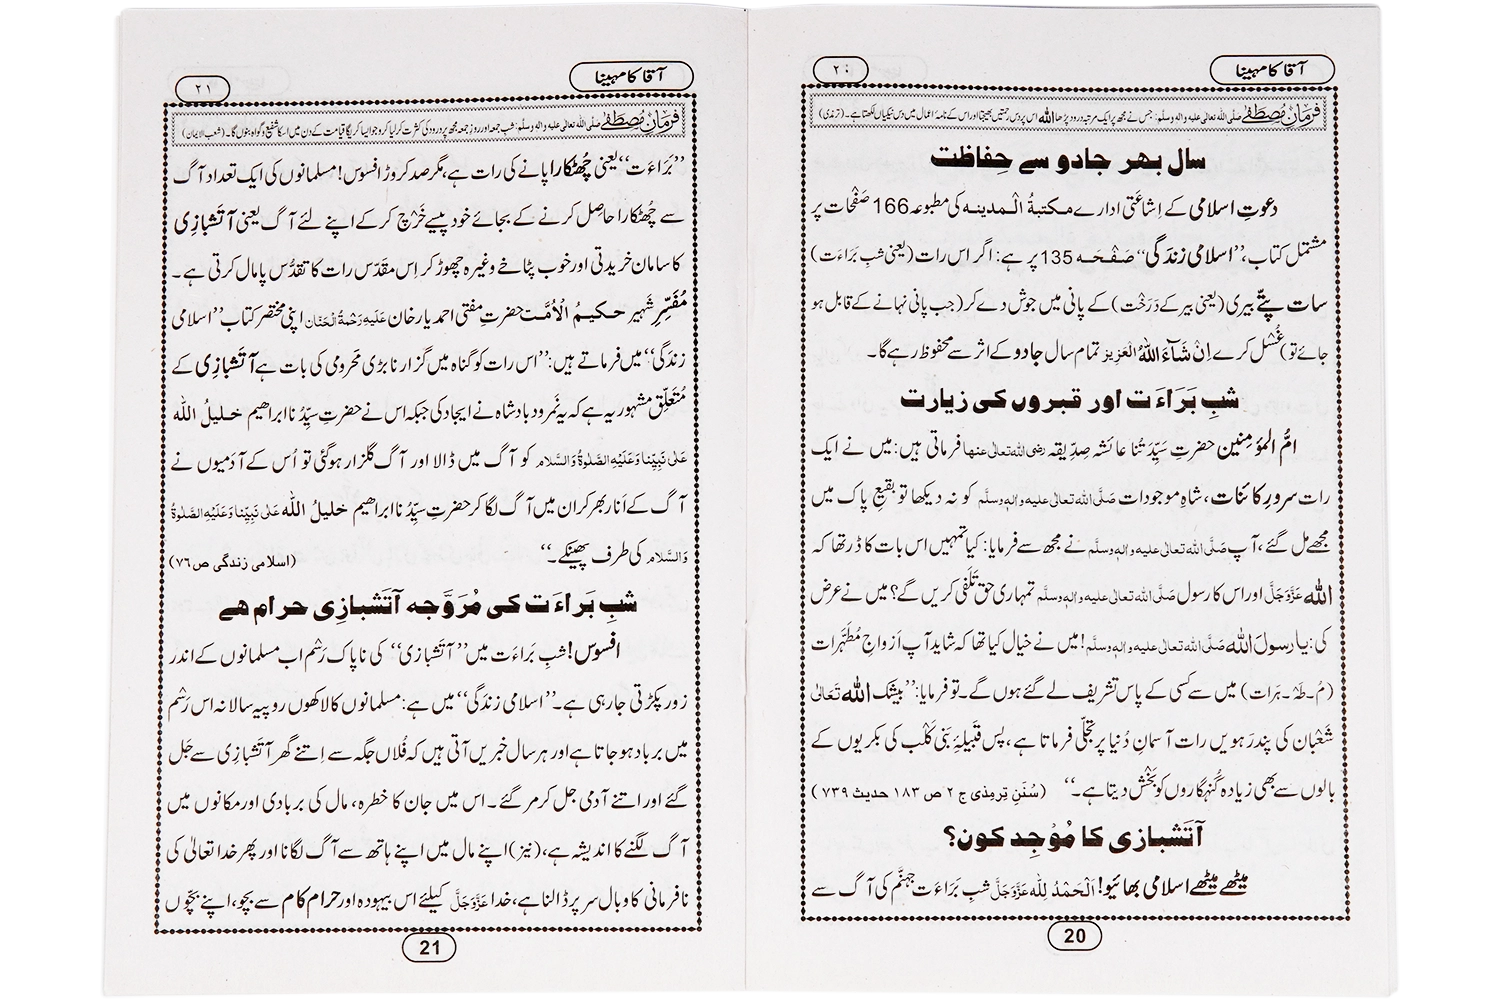 آقا کا مہینا
۲۰
فرمانِ مصطفٰے صلی اللہ تعالٰی علیہ والہ وسلم: جس نے مجھ پر ایک مرتبہ درود پڑھا اللہ اس پر دس رحمتیں بھیجتا اور اس کے نامۂ اعمال میں دس نیکیاں لکھتا ہے۔ (ترمذی)
سال بھر جادو سے حِفاظت
دعوتِ اسلامی کے اِشاعتی ادارے مکتبۃُ المدینہ کی مطبوعہ 166 صَفْحات پر
مشتمل کتاب، ’’اسلامی زندگی‘‘ صَفْحَہ 135 پر ہے: اگر اس رات (یعنی شبِ بَرَاءَت)
سات پتّے بیری (یعنی بیر کے دَرَخْت) کے پانی میں جوش دے کر (جب پانی نہانے کے قابل ہو
جائے تو) غُسْل کرے اِنْ شَآءَ اللہُ الْعَزِیز تمام سال جادو کے اثر سے محفوظ رہے گا۔
شبِ بَرَاءَت اور قبروں کی زیارت
امُّ المؤمِنین حضرتِ سیِّدَتُنا عائشہ صِدِّیقہ رضی اللہ تعالٰی عنہا فرماتی ہیں: میں نے ایک
رات سرورِ کائنات، شاہِ موجودات صَلَّی اللہ تعالٰی علیہ والہٖ وسلَّم کو نہ دیکھا تو بقیعِ پاک میں
مجھے مل گئے، آپ صَلَّی اللہ تعالٰی علیہ والہٖ وسلَّم نے مجھ سے فرمایا: کیا تمہیں اس بات کا ڈر تھا کہ
اللہ عَزَّوَجَلَّ اور اس کا رسول صَلَّی اللہ تعالٰی علیہ والہٖ وسلَّم تمہاری حق تَلَفی کریں گے؟ میں نے عرض
کی: یا رسولَ اللہ صَلَّی اللہ تعالٰی علیہ والہٖ وسلَّم! میں نے خیال کیا تھا کہ شاید آپ اَزواجِ مُطَہَّرات
(مُ۔طَہْ۔ہَرات) میں سے کسی کے پاس تشریف لے گئے ہوں گے۔ تو فرمایا: ’’بیشک اللہ تَعَالٰی
شَعْبان کی پندرَہویں رات آسمانِ دُنیا پر تجلّی فرماتا ہے، پس قبیلۂِ بَنی کَلْب کی بکریوں کے
بالوں سے بھی زیادہ گُنہگاروں کو بَخْش دیتا ہے۔‘‘ (سُنَنِ تِرمِذی ج ۲ ص ۱۸۳ حدیث ۷۳۹)
آتَشبازی کا مُوْجِد کون؟
میٹھے میٹھے اسلامی بھائیو! اَلْحَمْدُ لِلّٰہ عَزَّوَجَلَّ شبِ بَرَاءَت جہنَّم کی آگ سے
20
آقا کا مہینا
۲۱
فرمانِ مصطفٰے صلی اللہ تعالٰی علیہ والہ وسلم: شبِ جمعہ اور روزِ جمعہ مجھ پر درود کی کثرت کر لیا کرو جو ایسا کریگا قیامت کے دن میں اسکا شفیع و گواہ بنوں گا۔ (شعب الایمان)
’’بَرَاءَت‘‘ یعنی چُھٹکارا پانے کی رات ہے، مگر صد کروڑ افسوس! مسلمانوں کی ایک تعداد آگ
سے چُھٹکارا حاصِل کرنے کے بجائے خود پیسے خَرْچ کر کے اپنے لئے آگ یعنی آتَشبازی
کا سامان خریدتی اور خوب پٹاخے وغیرہ چھوڑ کر اِس مقدَّس رات کا تقدُّس پامال کرتی ہے۔
مُفَسِّرِ شہیر حکیمُ الْاُمَّت حضرتِ مفتی احمد یار خان عَلَیْہِ رَحْمَۃُ الْحَنَّان اپنی مختصر کتاب ’’اسلامی
زندگی‘‘ میں فرماتے ہیں: ’’اس رات کو گناہ میں گزارنا بڑی مَحرومی کی بات ہے آتَشبازی کے
مُتَعلِّق مشہور یہ ہے کہ یہ نَمرود بادشاہ نے ایجاد کی جبکہ اس نے حضرتِ سیِّدُنا ابراھیم خلیلُ اللہ
عَلٰی نَبِیِّنا وَعَلَیْہِ الصَّلٰوۃُ وَالسَّلام کو آگ میں ڈالا اور آگ گلزار ہو گئی تو اُس کے آدَمیوں نے
آگ کے اَنار بھر کر ان میں آگ لگا کر حضرتِ سیِّدُنا ابراھیم خلیلُ اللہ عَلٰی نَبِیِّنا وَعَلَیْہِ الصَّلٰوۃُ
وَالسَّلام کی طرف پھینکے۔‘‘ (اسلامی زندگی ص ۷۶)
شبِ بَرَاءَت کی مُرَوَّجہ آتَشبازِی حرام ھے
افسوس! شبِ بَرَاءَت میں ’’آتَشبازی‘‘ کی ناپاک رَسْم اب مسلمانوں کے اندر
زور پکڑتی جا رہی ہے۔ ’’اسلامی زندگی‘‘ میں ہے: مسلمانوں کا لاکھوں روپیہ سالانہ اس رَسْم
میں برباد ہو جاتا ہے اور ہر سال خبریں آتی ہیں کہ فُلاں جگہ سے اِتنے گھر آتَشبازی سے جَل
گئے اور اتنے آدمی جل کر مر گئے۔ اس میں جان کا خطرہ، مال کی بربادی اور مکانوں میں
آگ لگنے کا اندیشہ ہے، (نیز) اپنے مال میں اپنے ہاتھ سے آگ لگانا اور پھر خدا تعالیٰ کی
نافرمانی کا وبال سر پر ڈالنا ہے، خدا عَزَّوَجَلَّ کیلئے اس بیہودہ اور حرام کام سے بچو، اپنے بچّوں
21